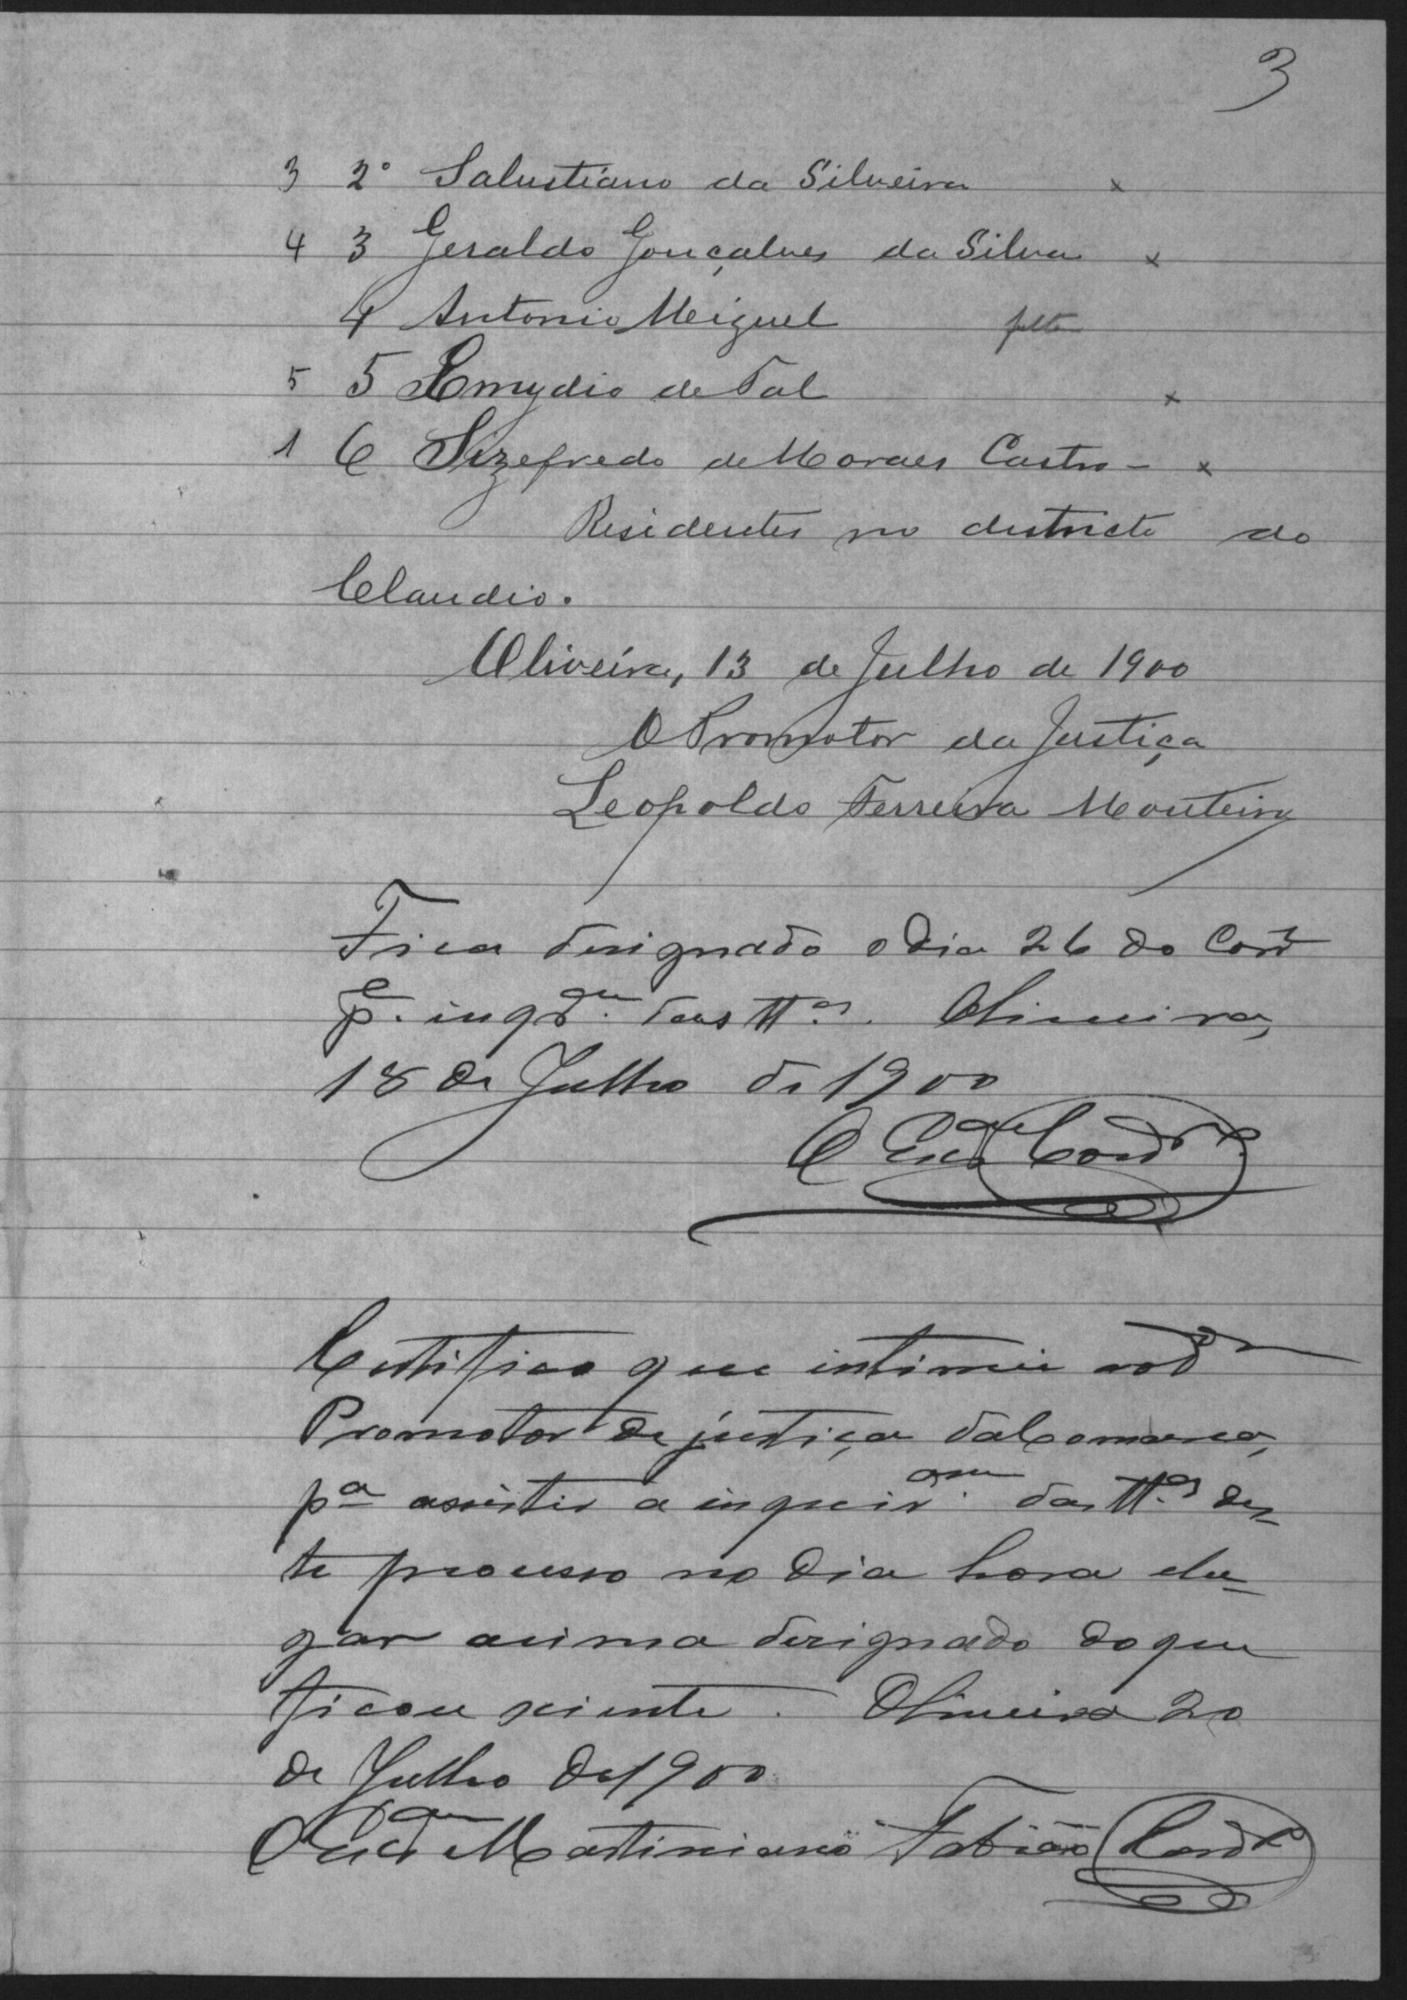 3
3 2º Salustiano da Silveira x
4 3 Geraldo Gonçalves da Silva x
4 Antonio Meiguel falta
5 5 Emydio de Tal x
1 6 Sizefredo de Moraes Castro - x
Residentes no districto do
Claudio.
Oliveira, 13 de Julho de 1900
O Promotor da Justiça
Leopoldo Ferreira Monteiro
Fica designado o dia 26 do Corrte
pª. inqdam. das ttªs. Oliveira,
18 de Julho de 1900
O Escram Cordrº.
Certifico que intimei ao dr
Promotor de justiça da Comarca,
pª assistir a inquiram. das ttªs des-
te processo no dia hora e lu-
gar acima designado do que
ficou sciente. Oliveira 20
de Julho de 1900
O Martiniano Fabião Cordrº